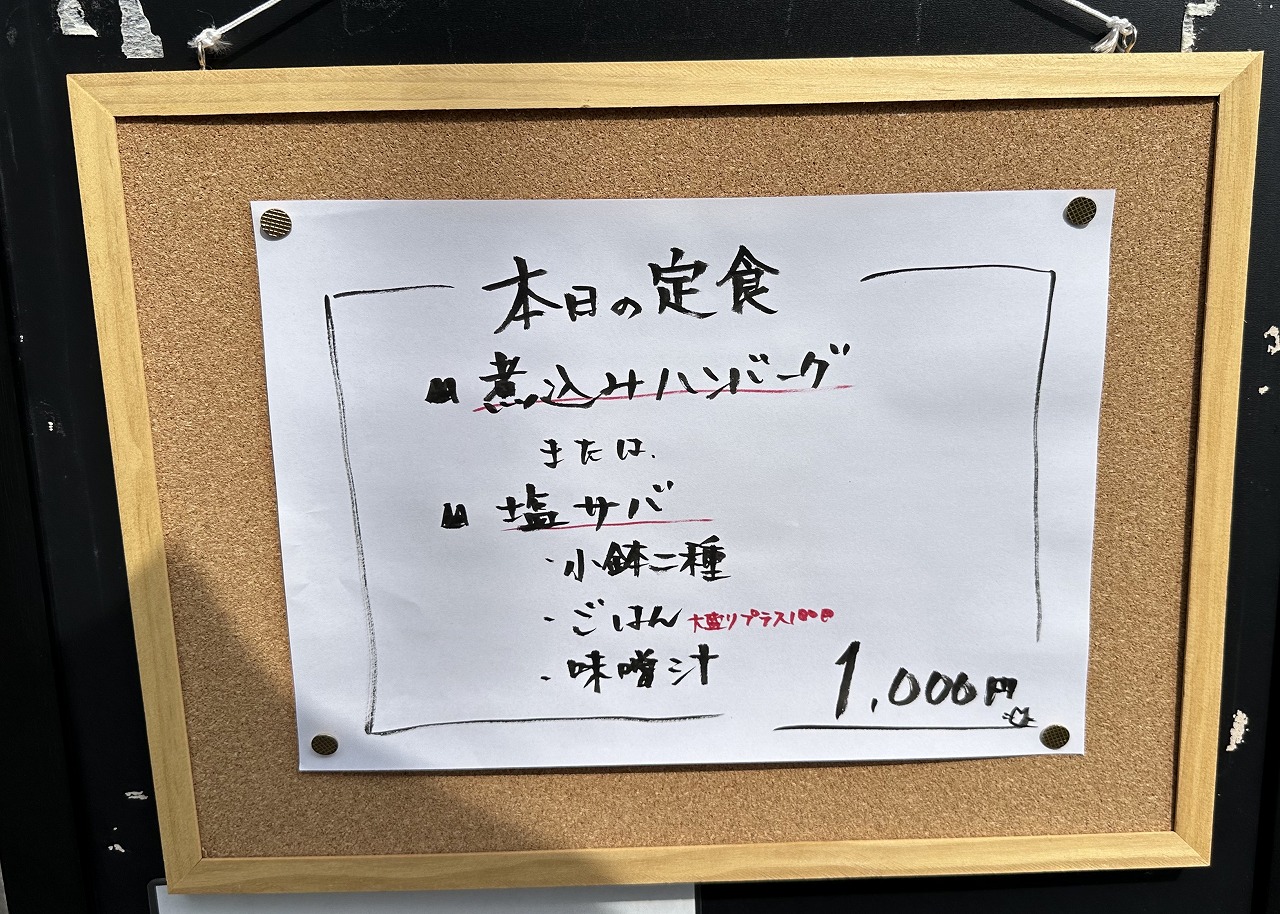 本日の定食
■ 煮込みハンバーグ
または.
■ 塩サバ
・小鉢二種
・ごはん 大盛りプラス100円
・味噌汁
1,000円